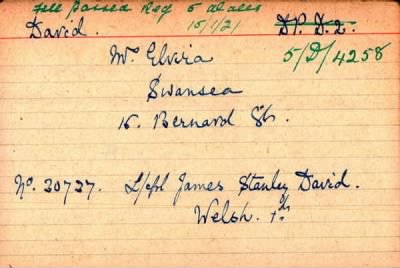 File passed Reg 5
15/1/21
David. D.P. D.2.
Mrs Elvira 5/D/4258
Swansea
15. Bernard St.
No. 30727. L/cpl James Stanley David.
Welsh.